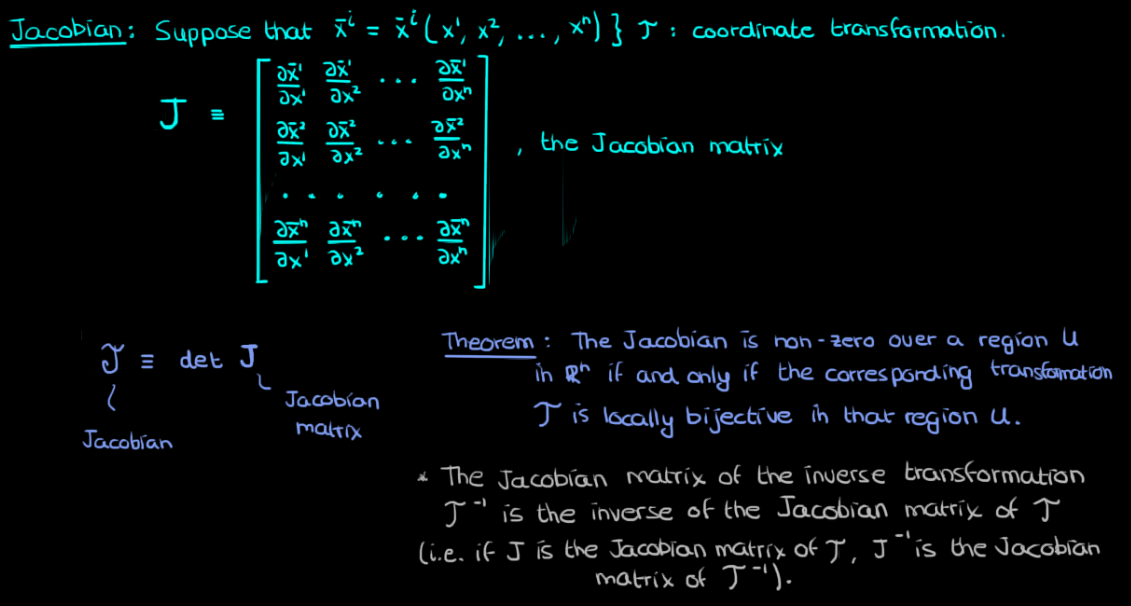 Jacobian: Suppose that x̄ⁱ = x̄ⁱ(x¹, x², ..., xⁿ) } 𝒯 : coordinate transformation.
J ≡ [ ∂x̄¹/∂x¹ ∂x̄¹/∂x² ... ∂x̄¹/∂xⁿ
∂x̄²/∂x¹ ∂x̄²/∂x² ... ∂x̄²/∂xⁿ
. . . . . .
∂x̄ⁿ/∂x¹ ∂x̄ⁿ/∂x² ... ∂x̄ⁿ/∂xⁿ ] , the Jacobian matrix
𝒥 ≡ det J
Jacobian
Jacobian
matrix
Theorem: The Jacobian is non-zero over a region U
in ℝⁿ if and only if the corresponding transformation
𝒯 is locally bijective in that region U.
* The Jacobian matrix of the inverse transformation
𝒯⁻¹ is the inverse of the Jacobian matrix of 𝒯
(i.e. if J is the Jacobian matrix of 𝒯, J⁻¹ is the Jacobian
matrix of 𝒯⁻¹).